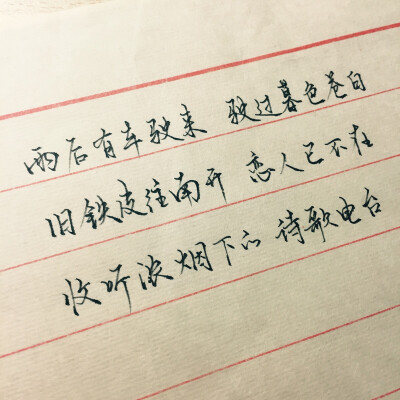 雨后有车驶来 驶过暮色苍白
旧铁皮往南开 恋人已不在
收听浓烟下的 诗歌电台